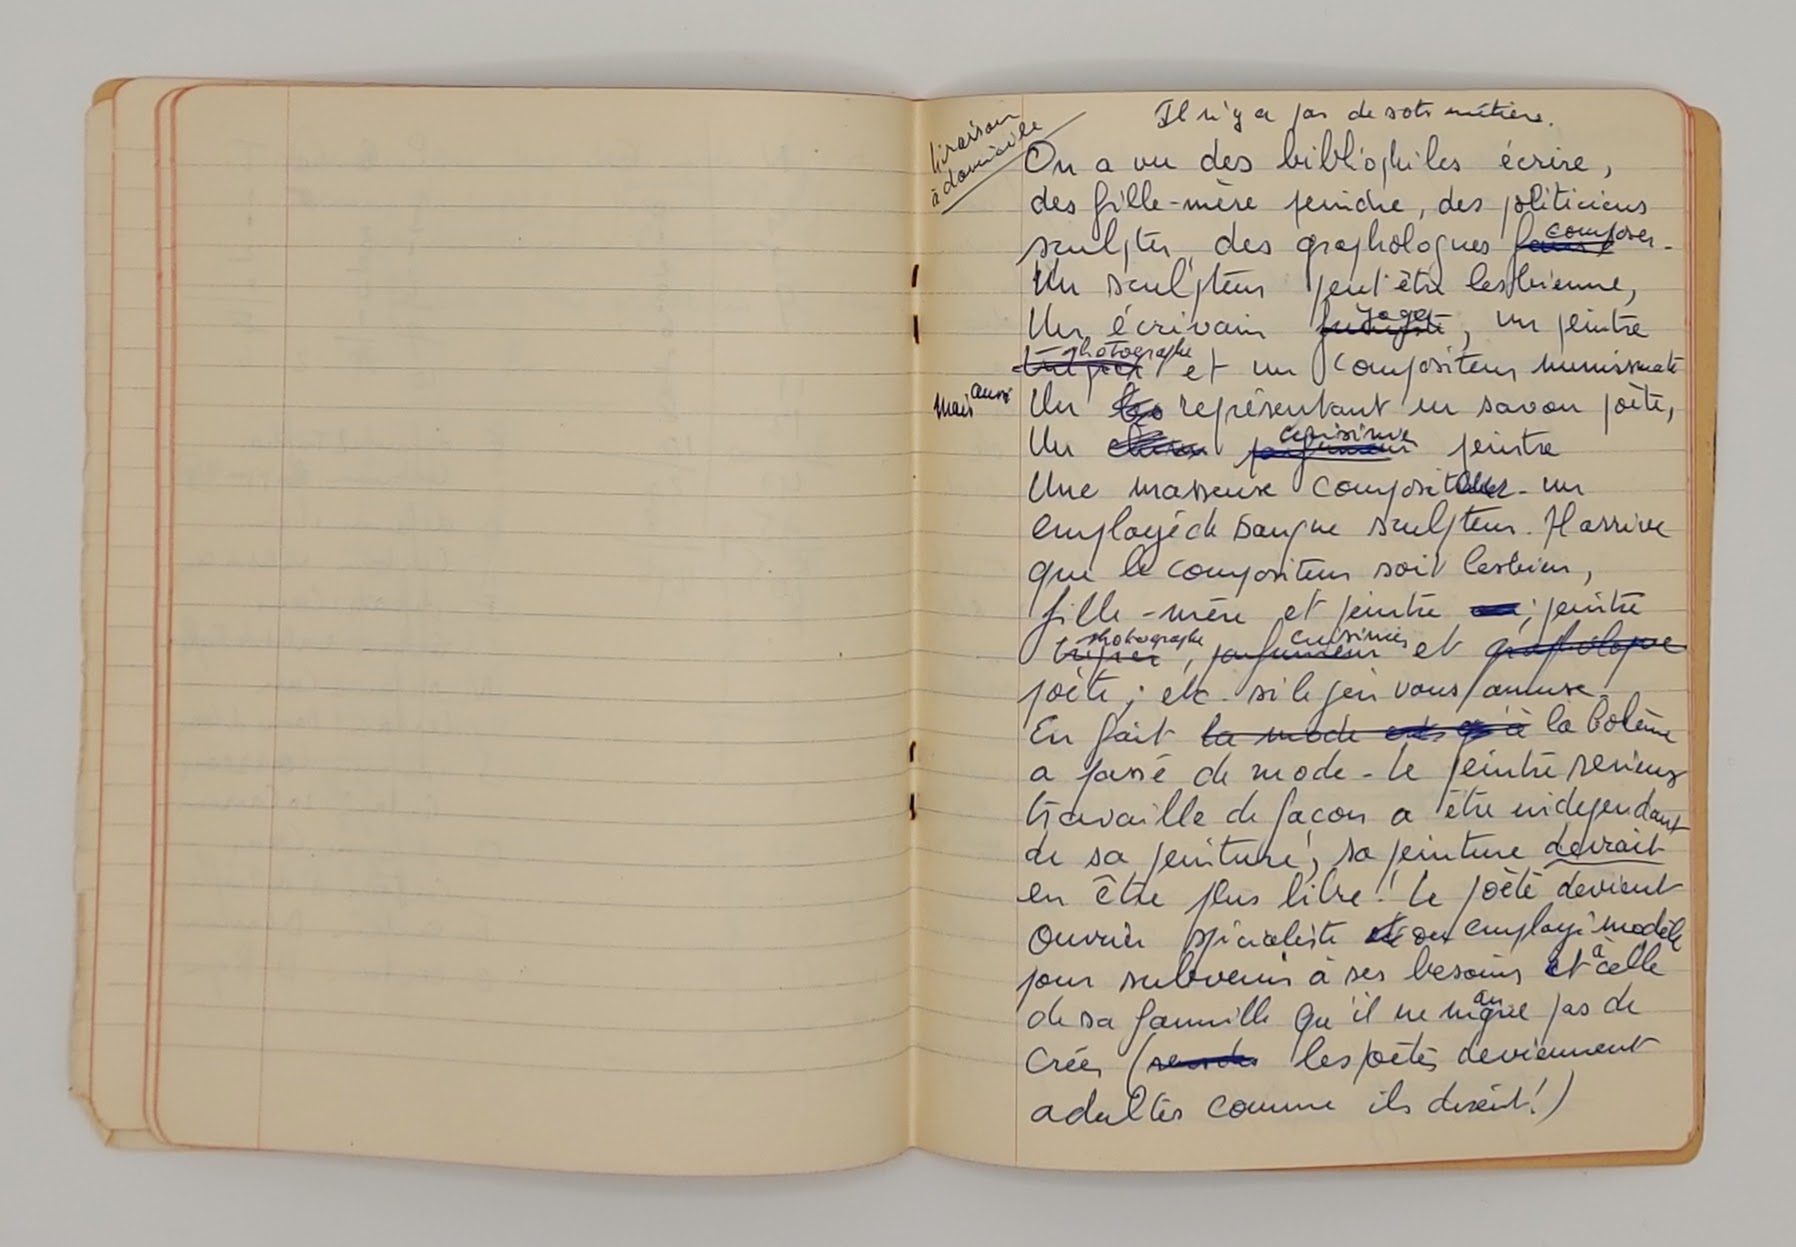 Il n'y a pas de sots métiers.
livraison
à domicile
On a vu des bibliophiles écrire,
des fille-mère peindre, des politiciens
sculpter, des graphologues composer.
Un sculpteur peut être lesbienne,
Un écrivain yoga, un peintre
photographe et un compositeur numismate
mais aussi Un représentant en savon poète,
Un parfumeur cuisinier peintre
Une masseuse compositeur - un
employé de banque sculpteur. Il arrive
que le compositeur soit lesbien,
fille-mère et peintre ; peintre
tripier photographe, parfumeur cuisinier et graphologue
poète ; etc. si le jeu vous amuse.
En fait la mode la bohème
a passé de mode - le peintre
travaille de façon a être independant
de sa peinture, sa peinture devrait
en être plus libre ! Le poète devient
Ouvrier spécialiste ou employé modèle
pour subvenir à ses besoins et à celle
de sa famille qu'il ne manque pas de
créer ( les poètes deviennent
adultes comme ils disent !)